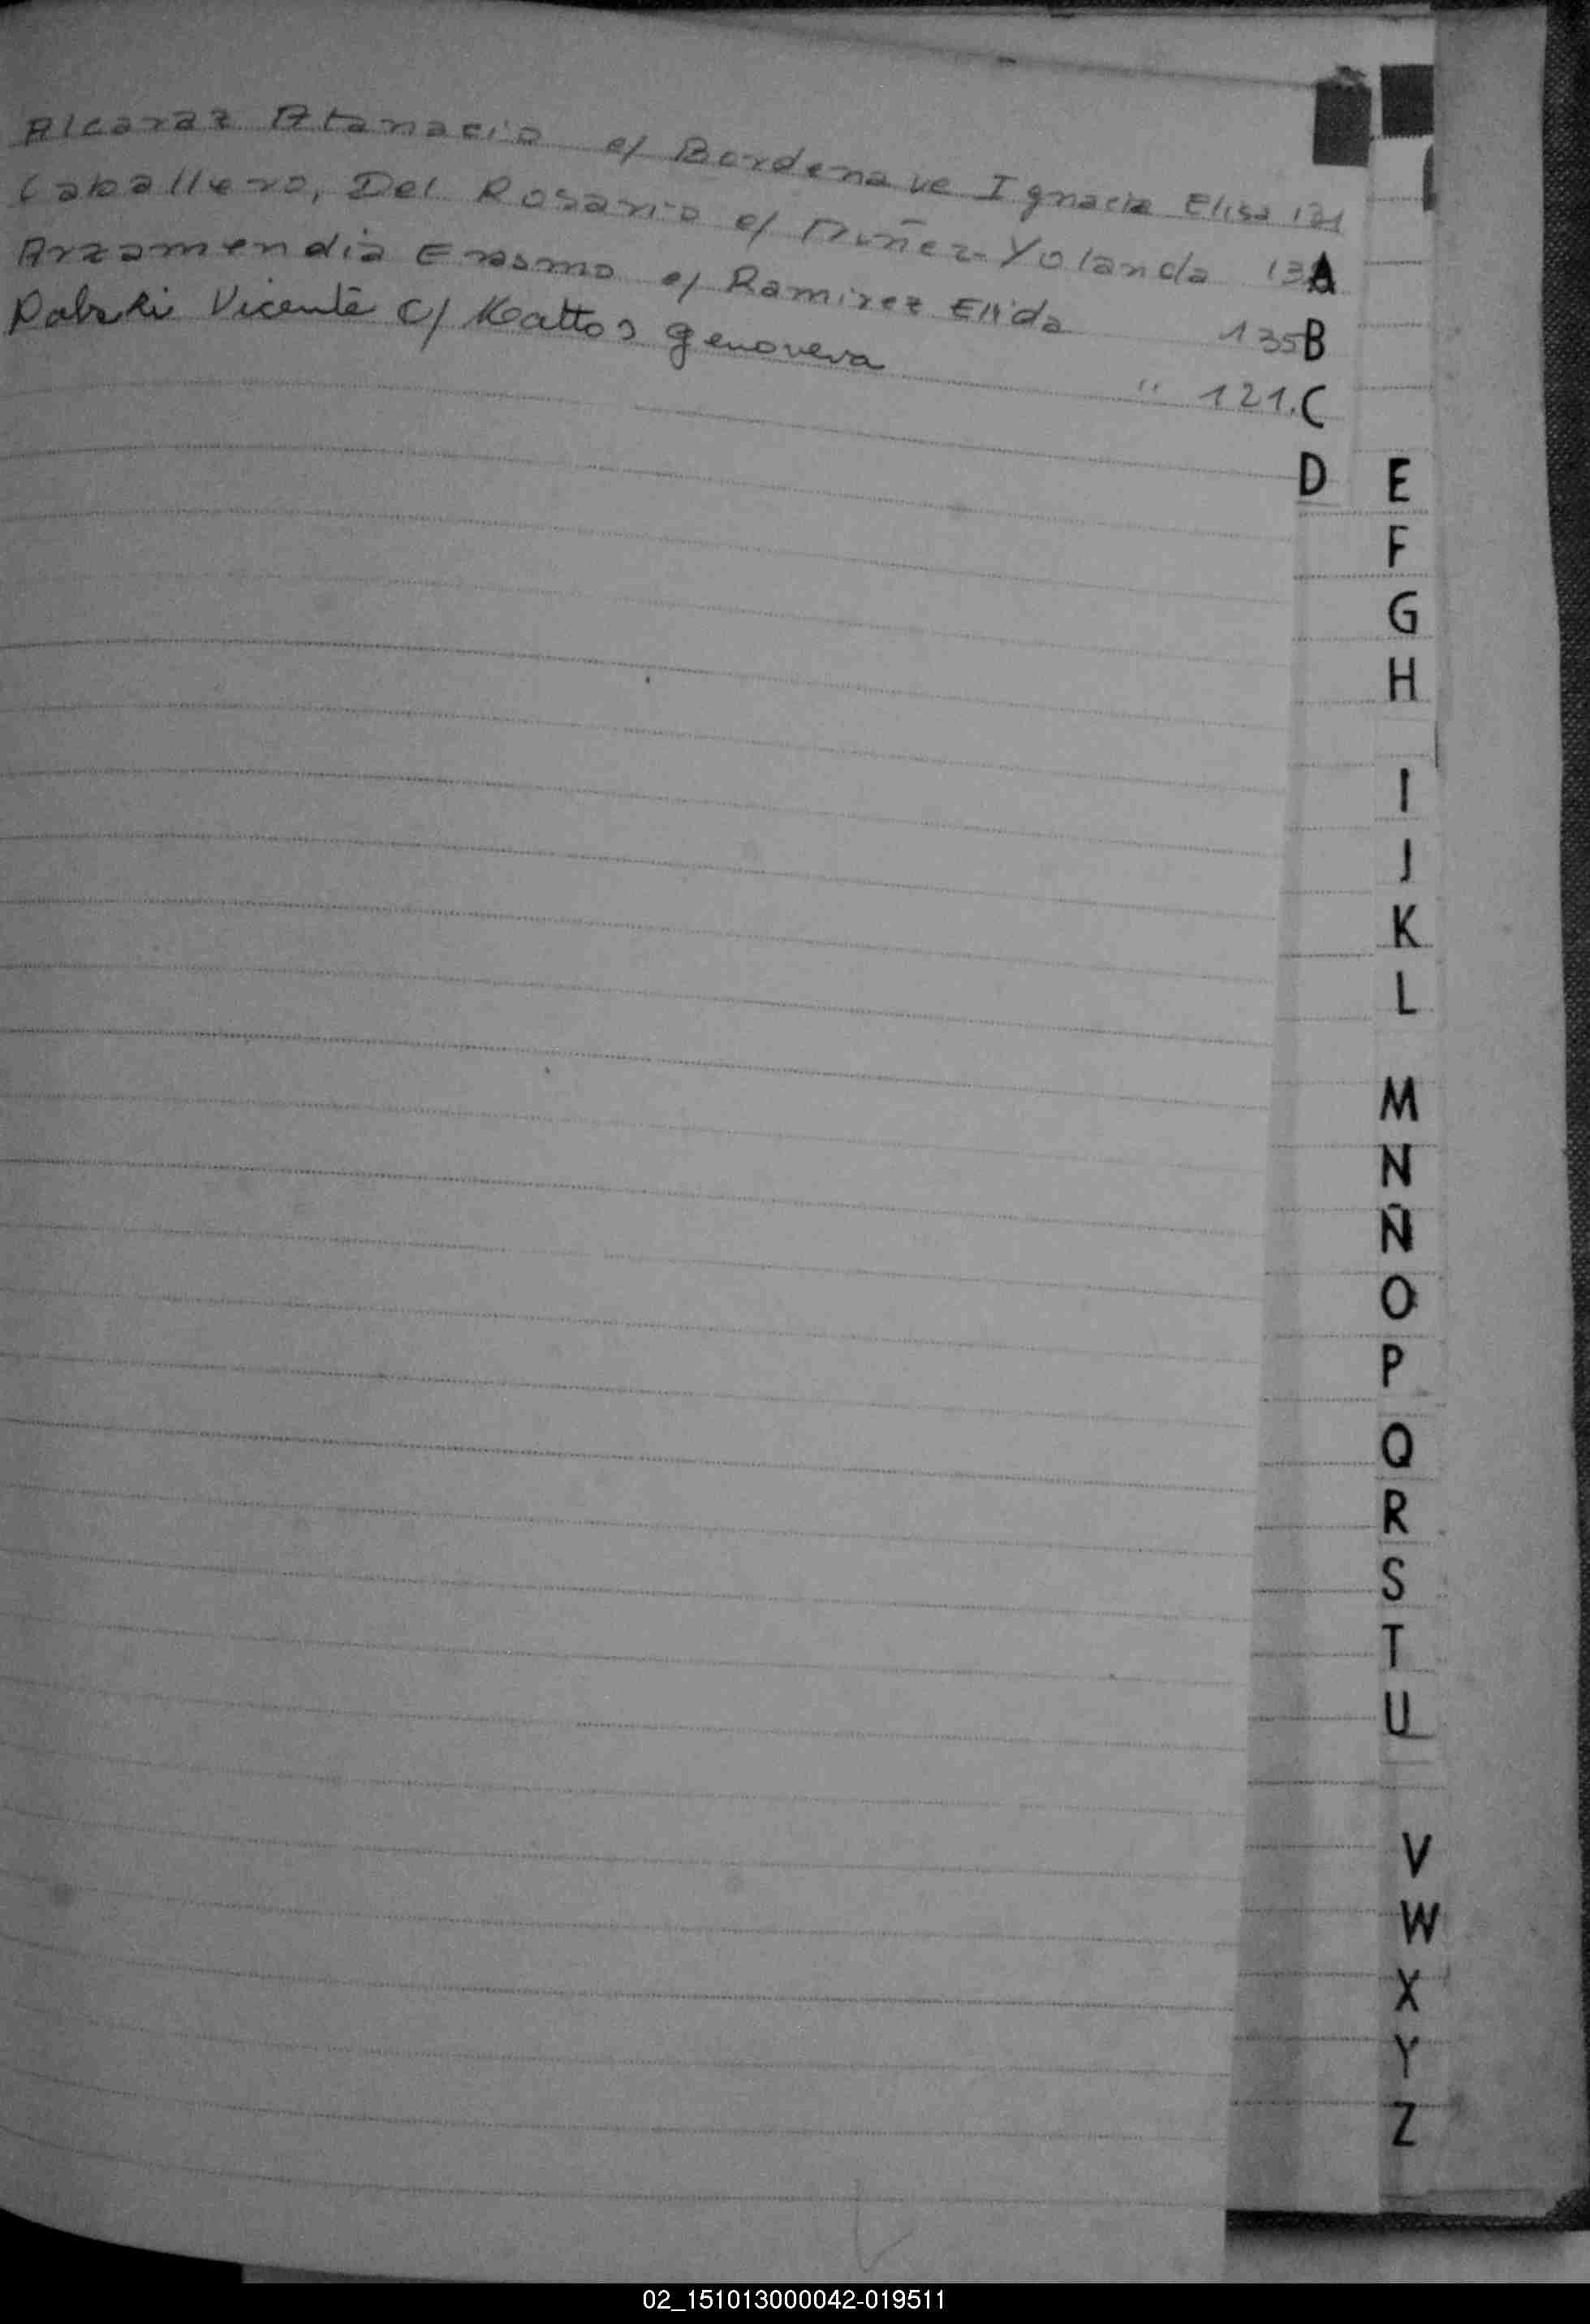 Alcaraz Atanacio c/ Bordenave Ignacia Elisa 121
Caballero, Del Rosario c/ Nuñez Yolanda 13
Arzamendia Erasmo c/ Ramirez Elida 135
Vicente c/ Mattos Genoveva " 121.
A
B
C
D
E
F
G
H
I
J
K
L
M
N
Ñ
O
P
Q
R
S
T
U
V
W
X
Y
Z
02_151013000042-019511